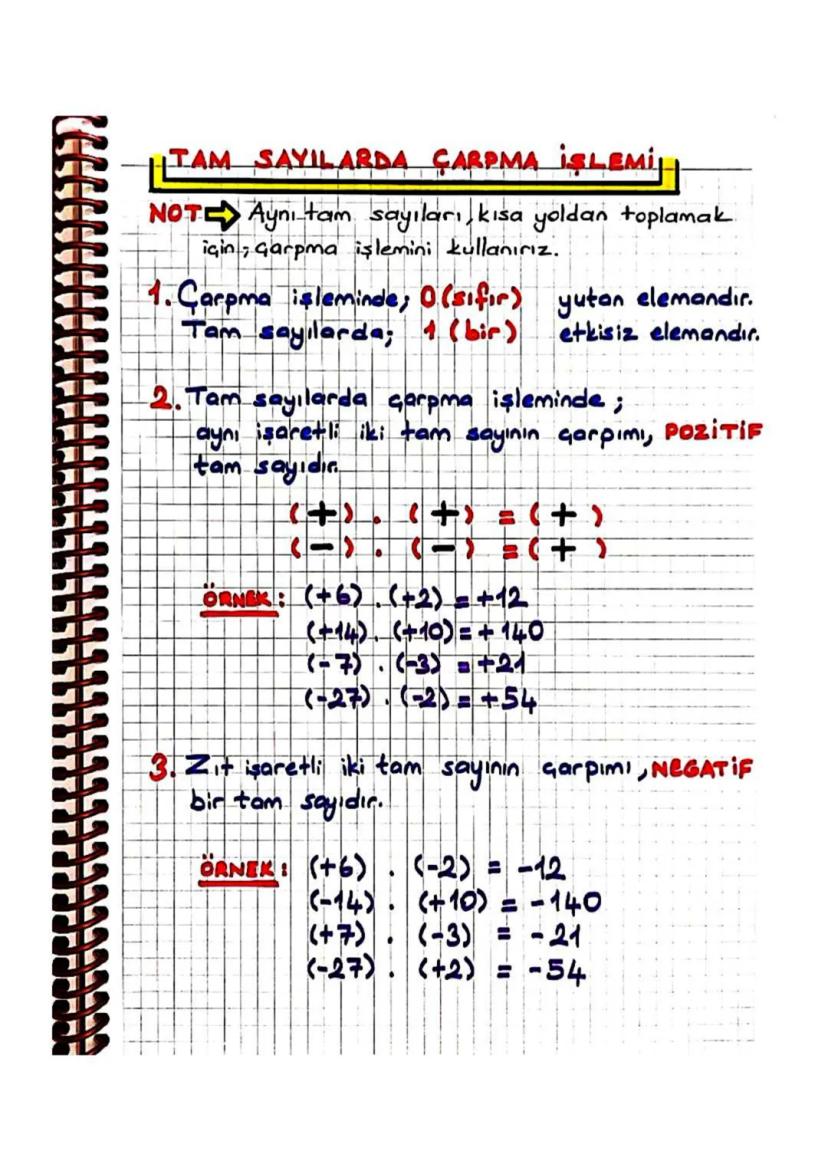 TAM SAYILARDA ÇARPMA İŞLEMİ
NOT ⇨ Aynı tam sayıları, kısa yoldan toplamak
için; çarpma işlemini kullanırız.
1. Çarpma işleminde; 0 (sıfır) yutan elemandır.
Tam sayılarda; 1 (bir) etkisiz elemandır.
2. Tam sayılarda çarpma işleminde;
aynı işaretli iki tam sayının çarpımı, POZİTİF
tam sayıdır.
(+) . (+) = (+)
(-) . (-) = (+)
ÖRNEK: (+6) . (+2) = +12
(+14) . (+10) = +140
(-7) . (-3) = +21
(-27) . (-2) = +54
3. Zıt işaretli iki tam sayının çarpımı, NEGATİF
bir tam sayıdır.
ÖRNEK: (+6) . (-2) = -12
(-14) . (+10) = -140
(+7) . (-3) = -21
(-27) . (+2) = -54